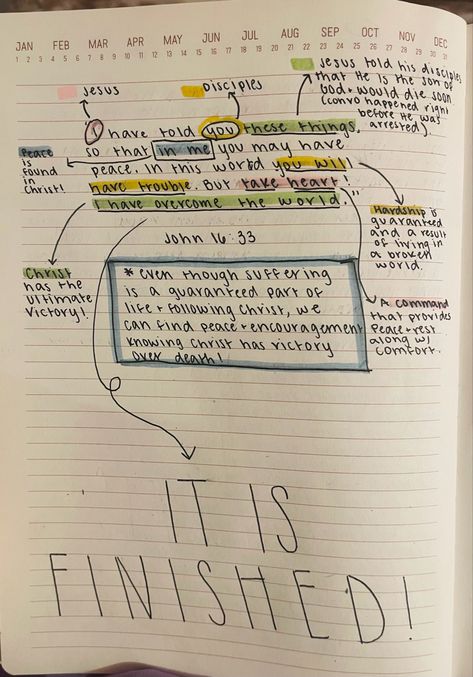 JAN FEB MAR APR MAY JUN JUL AUG SEP OCT NOV DEC
1 2 3 4 5 6 7 8 9 10 11 12 13 14 15 16 17 18 19 20 21 22 23 24 25 26 27 28 29 30 31
Jesus
Disciples
Jesus told his disciples
that He is the son of
God + would die soon
(convo happened right
before He was
arrested).
I have told you these things,
so that in me you may have
peace. In this world you will
have trouble. But take heart!
I have overcome the world."
John 16:33
Peace
is
found
in
Christ!
Hardship is
guaranteed
and a result
of living in
a broken
world.
Christ
has the
ultimate
victory!
A command
that provides
peace + rest
along w/
comfort.
* even though suffering
is a guaranteed part of
life + following Christ, we
can find peace + encouragement
knowing Christ has victory
over death!
IT IS
FINISHED!